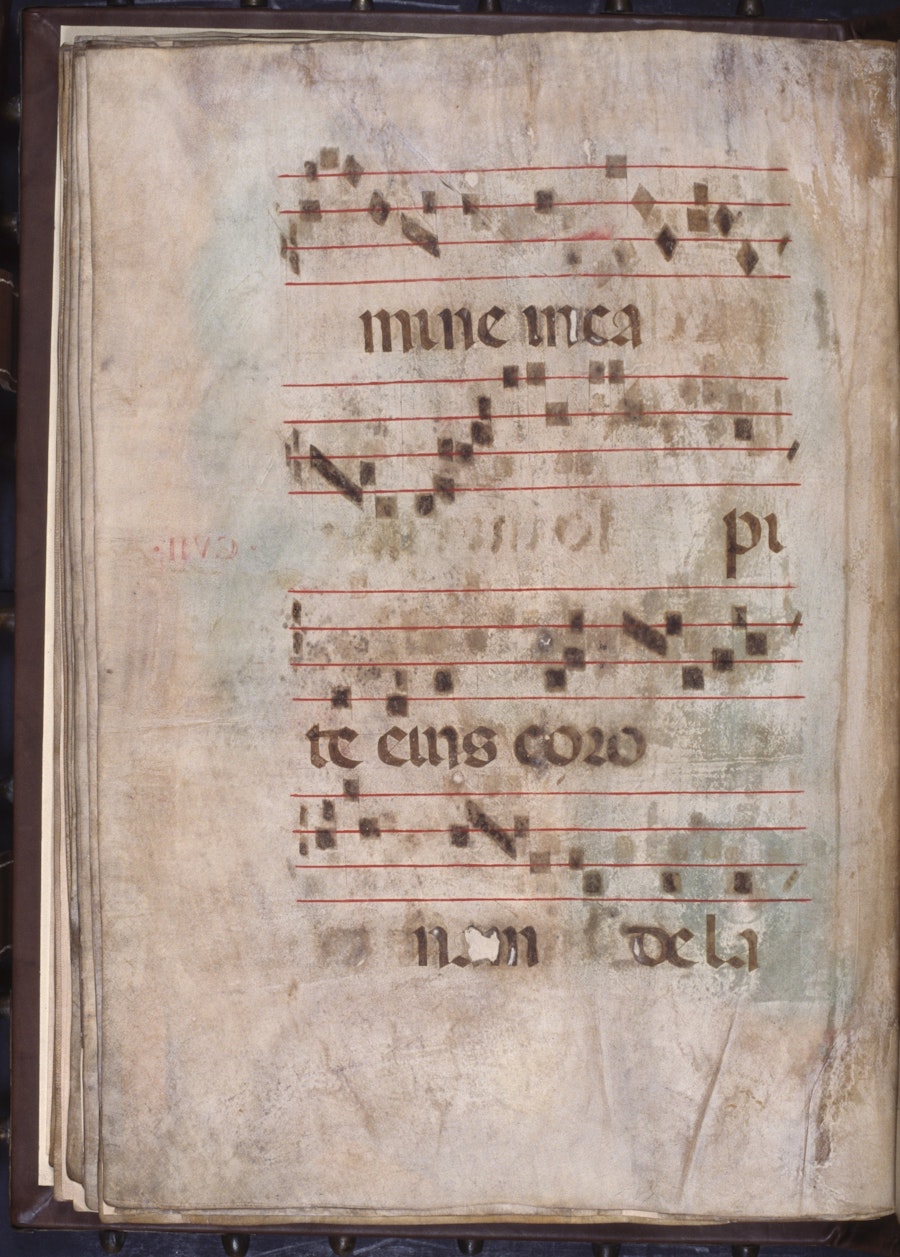 mine in ca
pi
te eius coro
nam de la